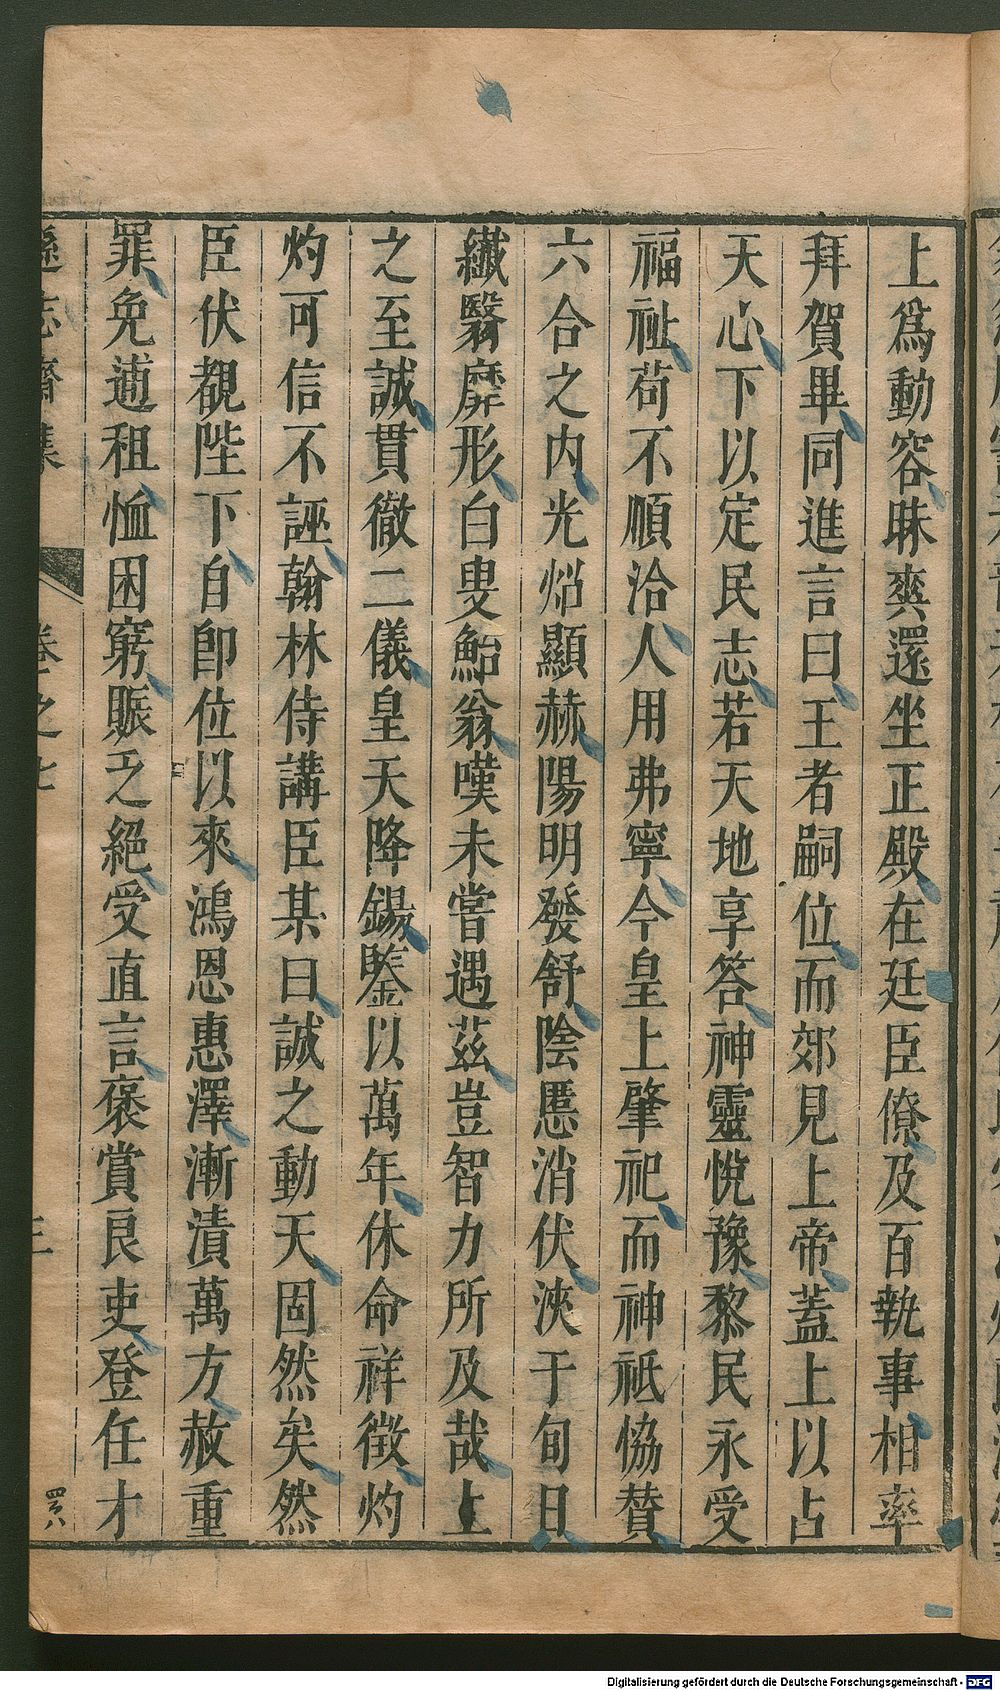 上爲動容昧爽還坐正殿在廷臣僚及百執事相率
拜賀畢同進言曰王者嗣位而郊見上帝蓋上以占
天心下以定民志若天地享答神靈悅豫黎民永受
福祉苟不順洽人用弗寧今皇上肇祀而神祗協賛
六合之内光焰顯赫陽明發舒陰慝消伏浹于旬日
纖翳靡形白叟鮐翁嘆未嘗遇茲豈智力所及哉上
之至誠貫徹二儀皇天降錫鑒以萬年休命祥徵灼
灼可信不誣翰林侍講臣某曰誠之動天固然矣然
臣伏覩陛下自卽位以來鴻恩惠澤漸漬萬方赦重
罪免逋租恤困窮賑乏絕受直言褒賞良吏登任才
遜志齋集
卷之七
Digitalisierung gefördert durch die Deutsche Forschungsgemeinschaft - DFG